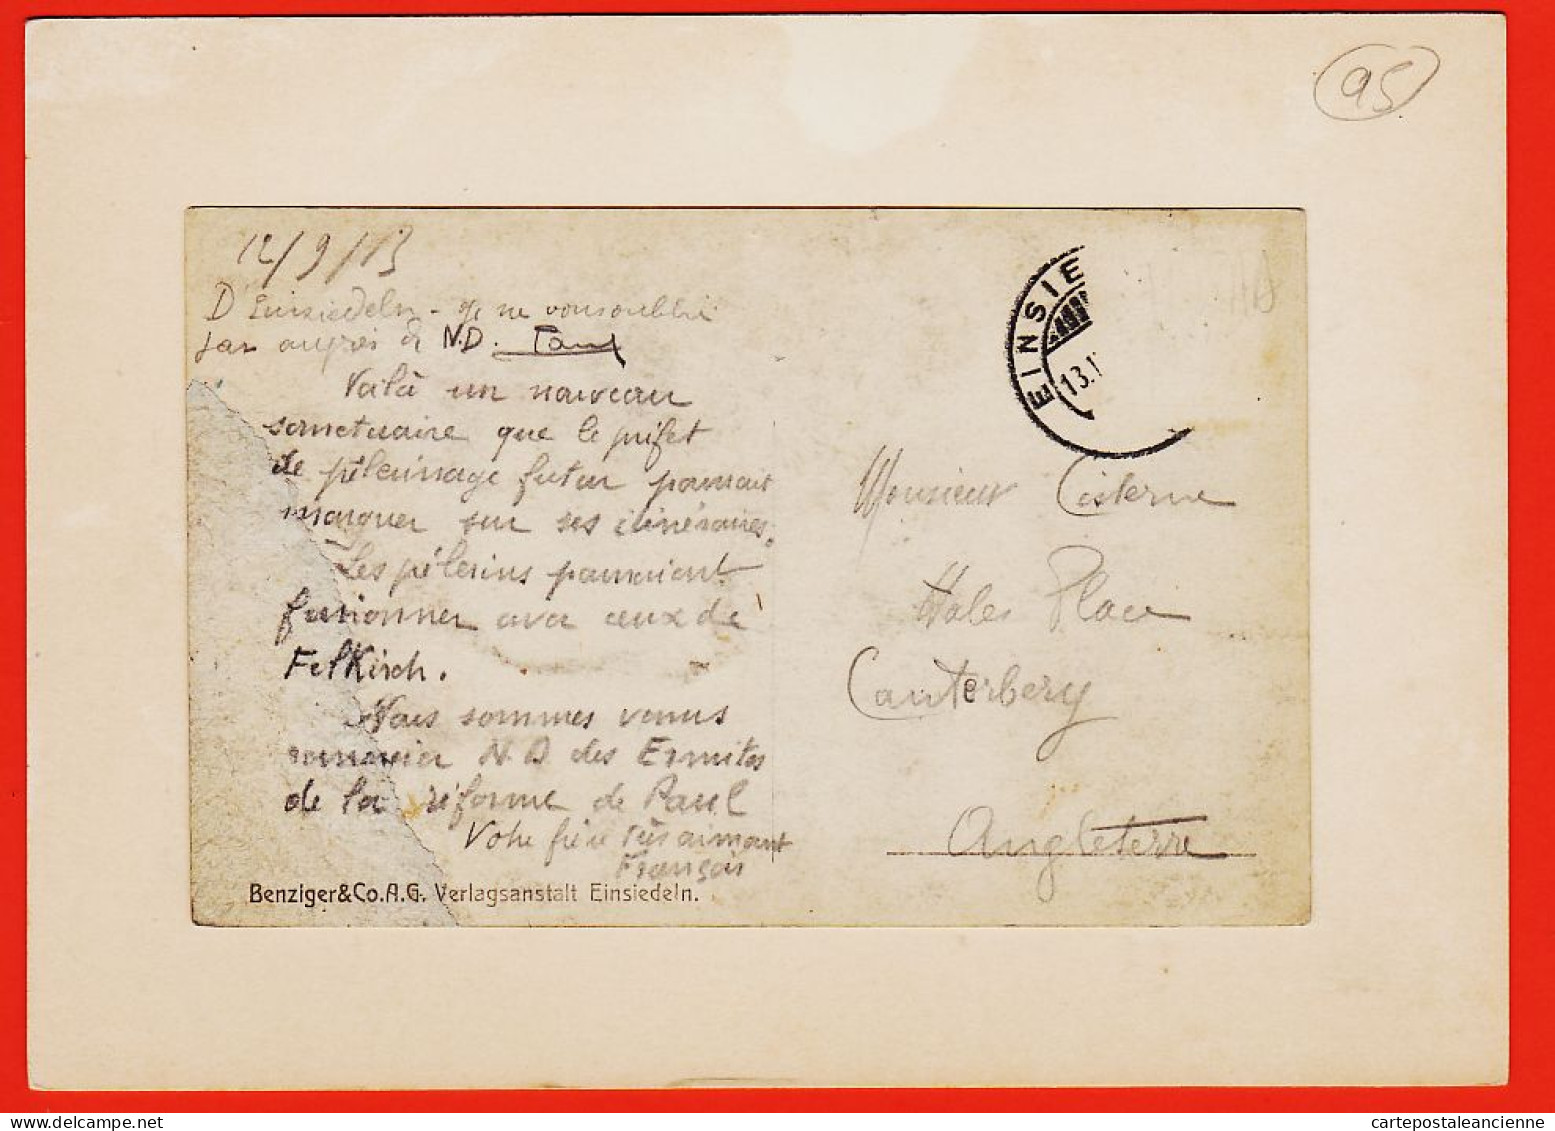 95
12/9/13
D'Einsiedeln - Je ne vous oublie
pas auprès de N.D. Paul
Voilà un nouveau
sanctuaire que le préfet
de pèlerinage futur pourrait
marquer sur ses itinéraires.
Les pélerins pourraient
fusionner avec ceux de
Felkirch.
Nous sommes venus
remercier N.D. des Ermites
de la réforme de Paul
Votre frère très aimant
François
Benziger&Co.A.G. Verlagsanstalt Einsiedeln.
EINSIE
13.
Monsieur Cisterne
Hales Place
Canterbery
Angleterre
cartepostaleancienne
delcampe.net